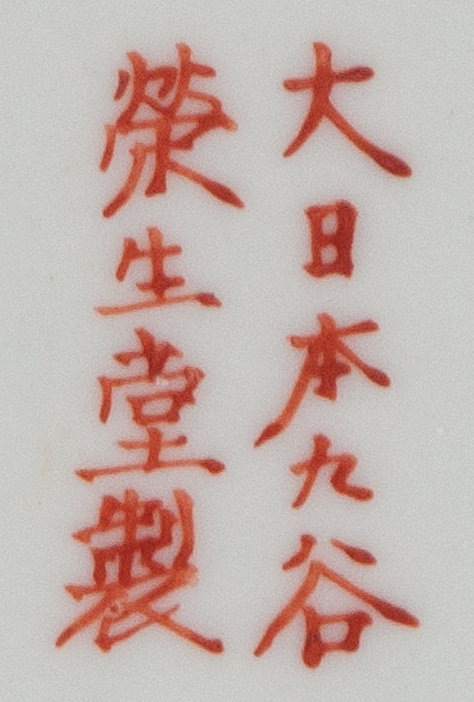 大日本九谷
榮生堂製